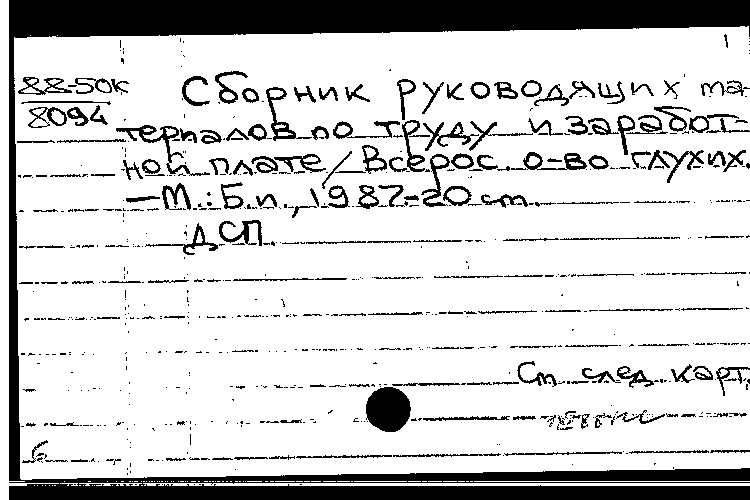 1
88-50к
8094
Сборник руководящих ма-
териалов по труду и заработ-
ной плате / Всерос. о-во глухих.
— М.: Б.и., 1987-20 ст.
ДСП.
Ст след. карт.
6